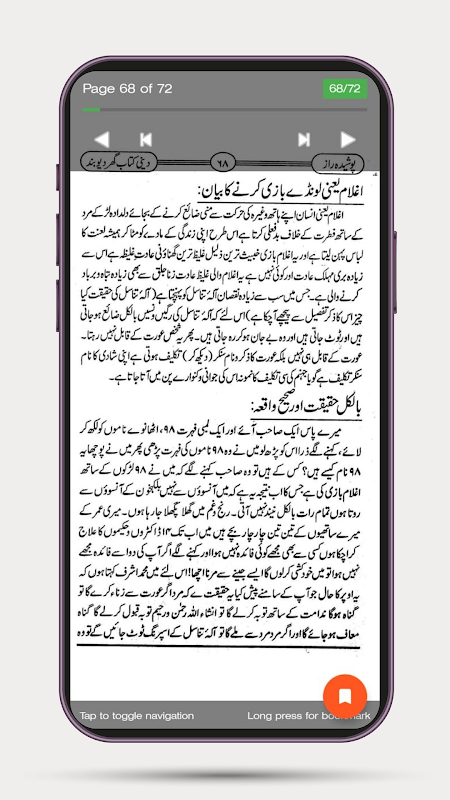 Page 68 of 72
68/72
پوشیدہ راز
۶۸
دینی کتاب گھر دیوبند
اغلام یعنی لونڈے بازی کرنے کا بیان:
اغلام یعنی انسان اپنے ہاتھ وغیرہ کی حرکت سے منی ضائع کرنے کے بجائے دلدادہ لڑکے مرد
کے ساتھ فطرت کے خلاف بدفعلی کرتا ہے اس طرح اپنی زندگی کے مادے کو مٹا کر ہمیشہ لعنت کا
لباس پہن لیتا ہے اور یہ اغلام بازی خبیث ترین ذلیل غلیظ ترین گھناؤنی عادت غلیظہ ہے اس سے
زیادہ بری مہلک عادت اور کوئی نہیں ہے یہ اغلام والی غلیظ عادت زنا جلق سے بھی زیادہ تباہ و برباد
کرنے والی ہے۔ جس میں سب سے زیادہ نقصان آلۂ تناسل کو پہنچتا ہے (آلۂ تناسل کی حقیقت کیا
چیز اس کا ذکر تفصیل سے پیچھے آچکا ہے) اس لئے کہ آلۂ تناسل کی رگیں نسیں بالکل ضائع ہو جاتی
ہیں اور ٹوٹ جاتی ہیں اور وہ بے جان ہو کر رہ جاتی ہیں۔ پھر یہ شخص عورت کے قابل نہیں رہتا۔
عورت کے قابل ہی نہیں بلکہ عورت کا ذکر و نام سنکر (دیکھ کر) تکلیف ہوتی ہے اپنی شادی کا نام
سنکر تکلیف ہے گویا جہنم کی سی تکلیف کا نمونہ اس کی جوانی و کنوارے پن میں آتا جاتا ہے۔
بالکل حقیقت اور صحیح واقعہ:
میرے پاس ایک صاحب آئے اور ایک لمبی فہرت ۹۸، اٹھانوے ناموں کو لکھ کر
لائے، کہنے لگے ذرا اس کو پڑھ لو میں نے وہ ۹۸ ناموں کی فہرت پڑھی پھر میں نے پوچھا یہ
۹۸ نام کیسے ہیں؟ کس کے ہیں تو وہ صاحب کہنے لگے کہ میں نے ۹۸ لڑکوں کے ساتھ
اغلام بازی کی ہے جس کا اب نتیجہ یہ ہے کہ میں آنسوؤں سے نہیں بلکہ خون کے آنسوؤں سے
روتا ہوں تمام رات بالکل نیند نہیں آتی۔ رنج و غم میں گھلا پگھلا جا رہا ہوں۔ میری عمر کے
میرے ساتھیوں کے تین تین چار چار بچے ہیں میں اب تک ۱۴ ڈاکٹروں و حکیموں کا علاج
کرا چکا ہوں کسی سے بھی مجھے کوئی فائدہ نہیں ہوا اور کہنے لگے اگر آپ کی دوا سے فائدہ مجھے
نہیں ہوا تو میں خود کشی کر لوں گا ایسے جینے سے مرنا اچھا! اس لئے میں محمد اشرف کہتا ہوں کہ
یہ اوپر کا حال جو آپ کے سامنے پیش کیا یہ حقیقت ہے کہ مرد اگر عورت سے زناء کرے گا تو
گناہ ہوگا ندامت کے ساتھ توبہ کر لے گا تو انشاء اللہ رحمٰن و رحیم توبہ قبول کر لے گا گناہ
معاف ہو جائے گا اور اگر مرد مرد سے ملے گا تو آلۂ تناسل کے اسپرنگ ٹوٹ جائیں گے تو وہ
Tap to toggle navigation
Long press for bookmark